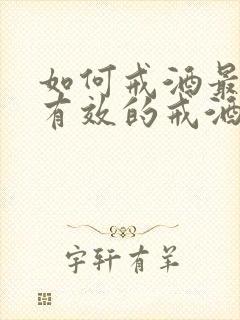 如何戒酒最
有效的戒酒
宇轩有羊